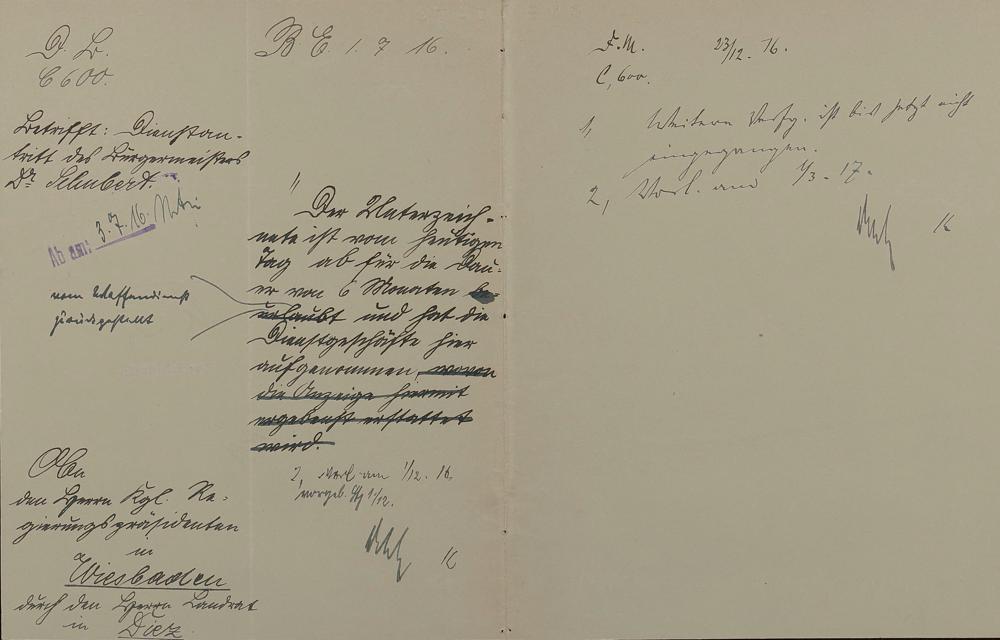 D. L.
C 600.
Betrifft: Dienstan-
tritt des Bürgermeisters
Dr. Schubert.
Ab am: 3.7.16.
vom Waffendienst
zurückgestellt
An
den Herrn Kgl. Re-
gierungspräsidenten
in
Wiesbaden
durch den Herrn Landrat
in Diez
B E. 1. 7 16.
1, Der Unterzeich-
nete ist vom heutigen
Tag ab für die Dau-
er von 6 Monaten be-
urlaubt und hat die
Dienstgeschäfte hier
aufgenommen, wovon
die Anzeige hiermit
ergebenst erstattet
wird.
2, Vorl. am 1/12. 16.
vorgel. 1/12.
F. M. 23/12. 16.
C, 600.
1, Weitere Verfg. ist bis jetzt nicht
eingegangen.
2, Vorl. am 1/3. 17.